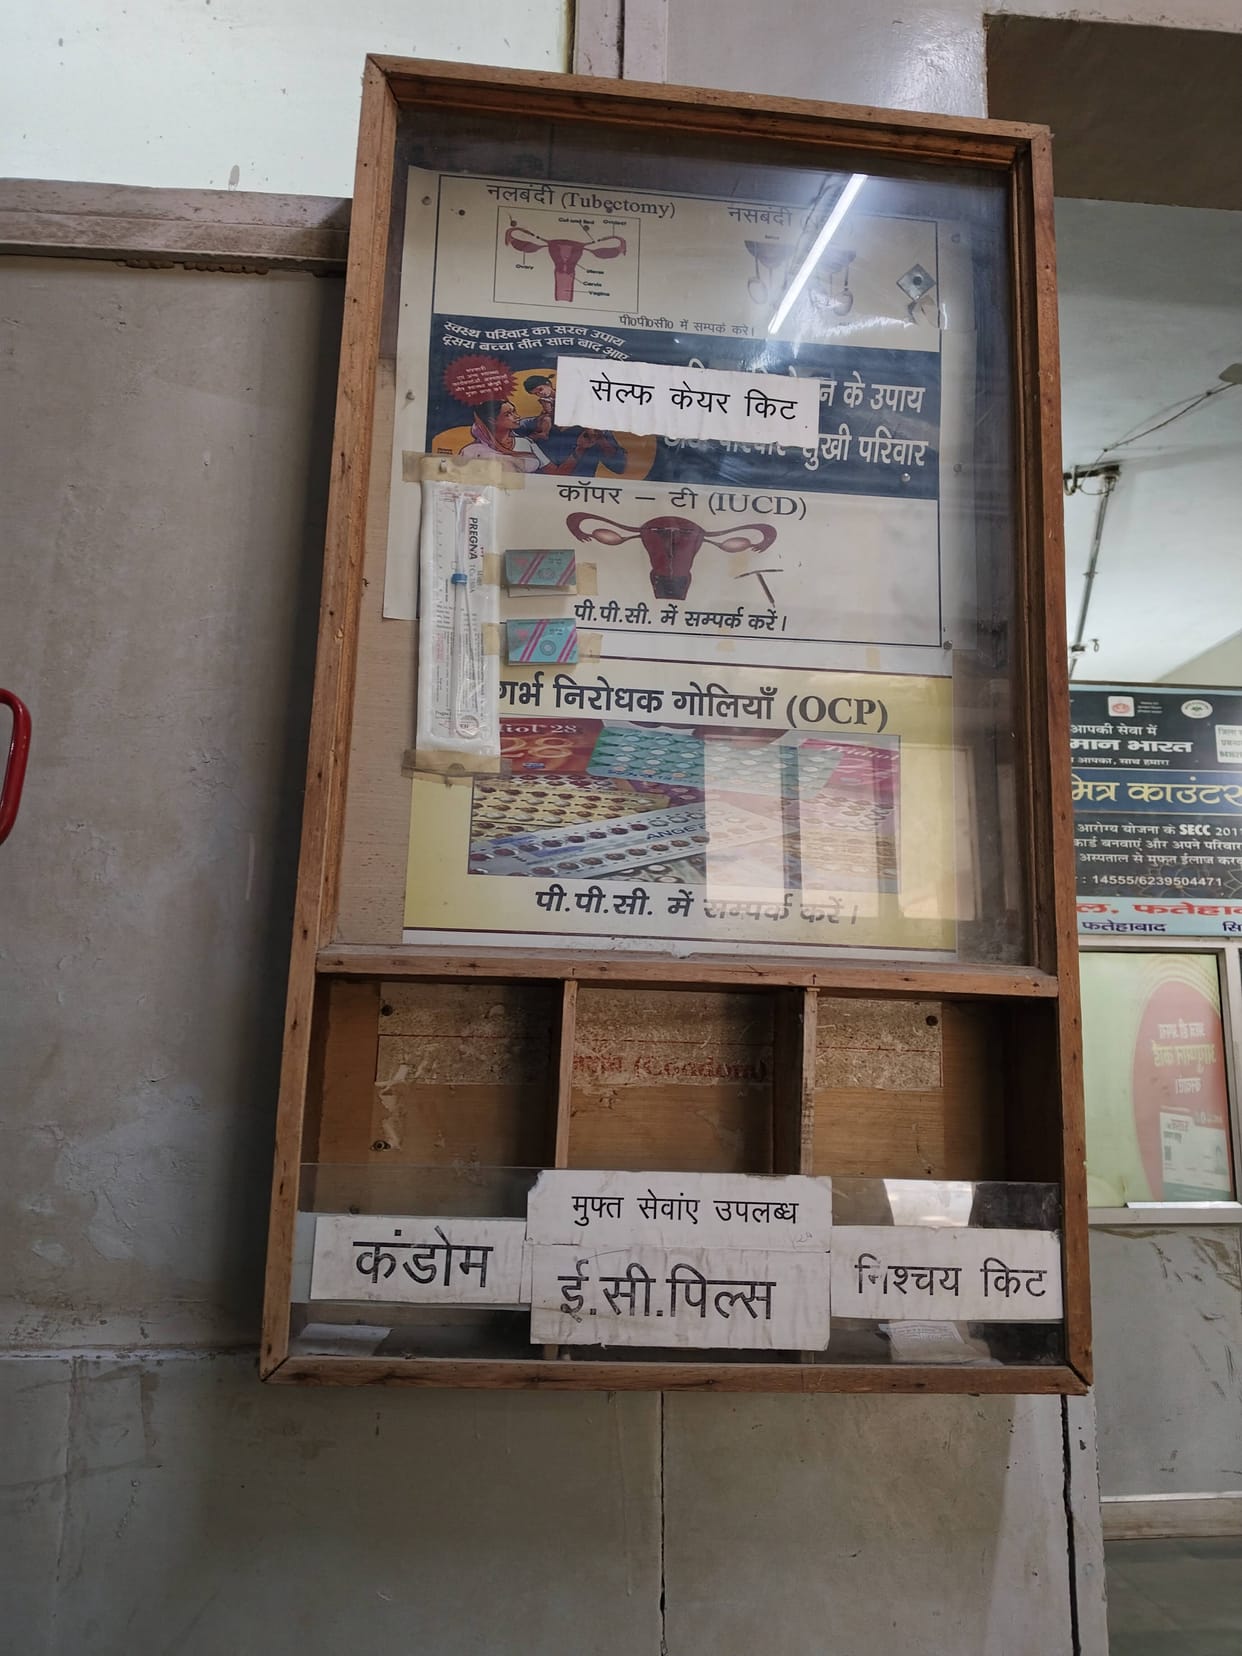 नलबंदी (Tubectomy)
Cut and tied
Oviduct
Ovary
Uterus
Cervix
Vagina
नसबंदी
पी0पी0सी0 में सम्पर्क करे।
स्वस्थ परिवार का सरल उपाय
दूसरा बच्चा तीन साल बाद आए
सेल्फ केयर किट
के उपाय
सुखी परिवार
कॉपर – टी (IUCD)
PREGNA
पी.पी.सी. में सम्पर्क करें।
गर्भ निरोधक गोलियाँ (OCP)
28
ANGE
पी.पी.सी. में सम्पर्क करें।
(Condom)
मुफ्त सेवांए उपलब्ध
कंडोम
ई.सी.पिल्स
निश्चय किट
आपकी सेवा में
मान भारत
आपका, साथ हमारा
मित्र काउंटर
आरोग्य योजना के SECC 2011
कार्ड बनवाएं और अपने परिवार
अस्पताल से मुफ्त ईलाज करव
: 14555/6239504471
ल, फतेहाब
फतेहाबाद
सि